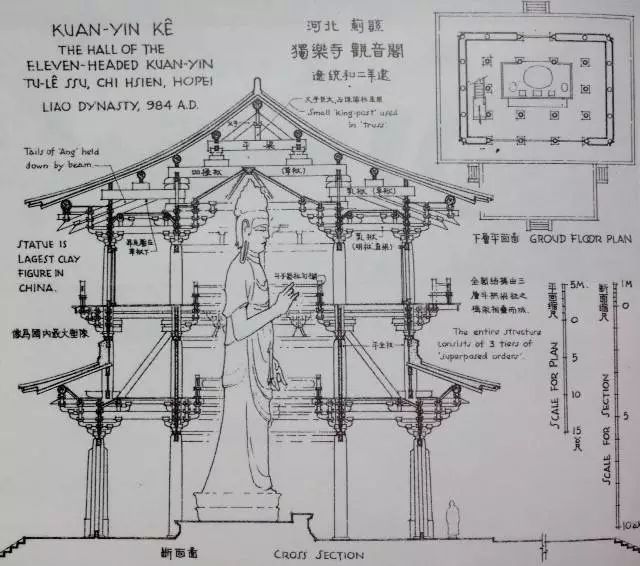 KUAN-YIN KÊ
THE HALL OF THE
ELEVEN-HEADED KUAN-YIN
TU-LÊ SSU, CHI HSIEN, HOPEI
LIAO DYNASTY, 984 A.D.
河北 薊縣
獨樂寺觀音閣
遼統和二年建
Small 'king-post' used
in 'truss'.
Tails of 'Ang' held
down by beam.
平梁
四椽栿
(草栿)
乳栿 (草栿)
乳栿
(明栿, 直梁)
STATUE IS
LAGEST CLAY
FIGURE IN
CHINA.
像爲國內最大塑像
The entire structure
consists of 3 tiers of
'superposed orders'.
下層平面圖 GROUD FLOOR PLAN
平面尺
5M.
0
5
10
15
SCALE FOR PLAN
斷面尺
1M
0
5
10
SCALE FOR SECTION
斷面圖 CROSS SECTION